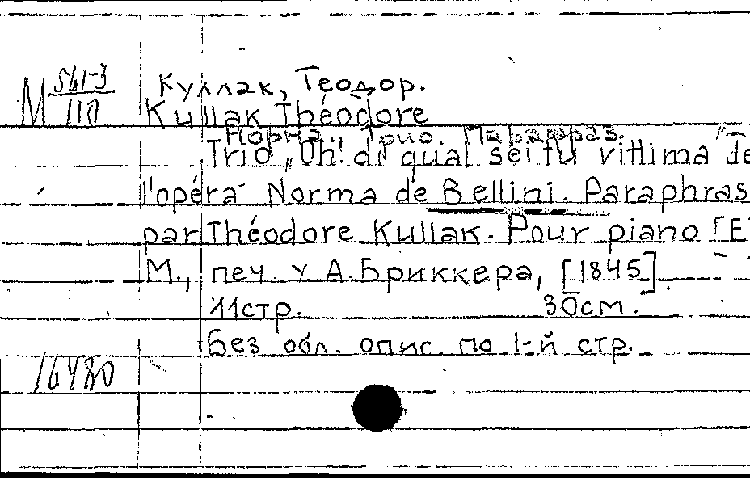 М 561-3/110
Куллак, Теодор.
Kullak Théodore
Норма. Трио. Парафраз.
Trio „Oh! di qual sei tu vittima" de
l'opéra Norma de Bellini. Paraphras
par Théodore Kullak. Pour piano [E
М., печ. у А. Бриккера, [1845]
11стр. 30см.
Без обл. опис. по 1-й стр.
16480